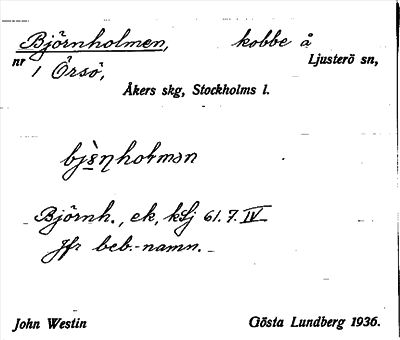 Björnholmen, kobbe å
nr 1 Örsö, Ljusterö sn,
Åkers skg, Stockholms l.
bjɛ̀ŋholmən
Björnh., ek, kLj 61.7.IV
Jfr beb.-namn.
John Westin Gösta Lundberg 1936.